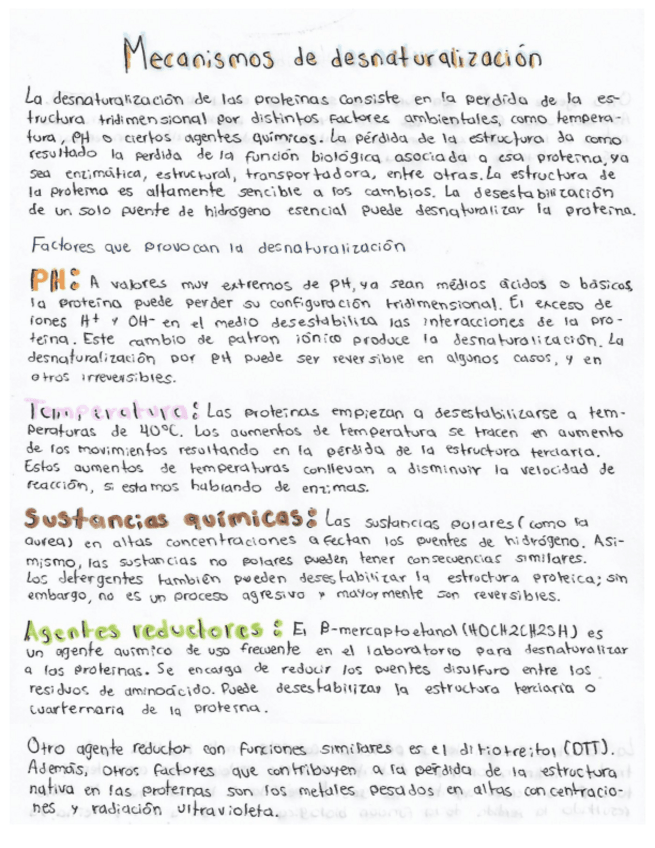 Mecanismos de desnaturalización
La desnaturalización de las proteínas consiste en la perdida de la es-
tructura tridimensional por distintos factores ambientales, como tempera-
tura, PH o ciertos agentes químicos. La pérdida de la estructura da como
resultado la perdida de la función biológica asociada a esa proteína, ya
sea enzimática, estructural, transportadora, entre otras. La estructura de
la proteína es altamente sencible a los cambios. La desestabilización
de un solo puente de hidrógeno esencial puede desnaturalizar la proteína.
Factores que provocan la desnaturalización
PH: A valores muy extremos de PH, ya sean médios ácidos o básicos,
la proteína puede perder su configuración tridimensional. El exceso de
iones H+ y OH- en el medio desestabiliza las interacciones de la pro-
teína. Este cambio de patron iónico produce la desnaturalización. La
desnaturalización por PH puede ser reversible en algunos casos, y en
otros irreversibles.
Temperatura: Las proteínas empiezan a desestabilizarse a tem-
peraturas de 40°C. Los aumentos de temperatura se tracen en aumento
de los movimientos resultando en la pérdida de la estructura terciaria.
Estos aumentos de temperaturas conllevan a disminuir la velocidad de
reacción, si estamos hablando de enzimas.
Sustancias químicas: Las sustancias polares (como la
aurea) en altas concentraciones afectan los puentes de hidrógeno. Asi-
mismo, las sustancias no polares pueden tener consecuencias similares.
Los detergentes también pueden desestabilizar la estructura proteica; sin
embargo, no es un proceso agresivo y mayormente son reversibles.
Agentes reductores: El β-mercaptoetanol (HOCH2CH2SH) es
un agente químico de uso frecuente en el laboratorio para desnaturalizar
a las proteínas. Se encarga de reducir los puentes disulfuro entre los
residuos de aminoácido. Puede desestabilizar la estructura terciaria o
cuarternaria de la proteína.
Otro agente reductor con funciones similares es el ditiotreitol (DTT).
Además, otros factores que contribuyen a la pérdida de la estructura
nativa en las proteínas son los metales pesados en altas concentracio-
nes y radiación ultravioleta.